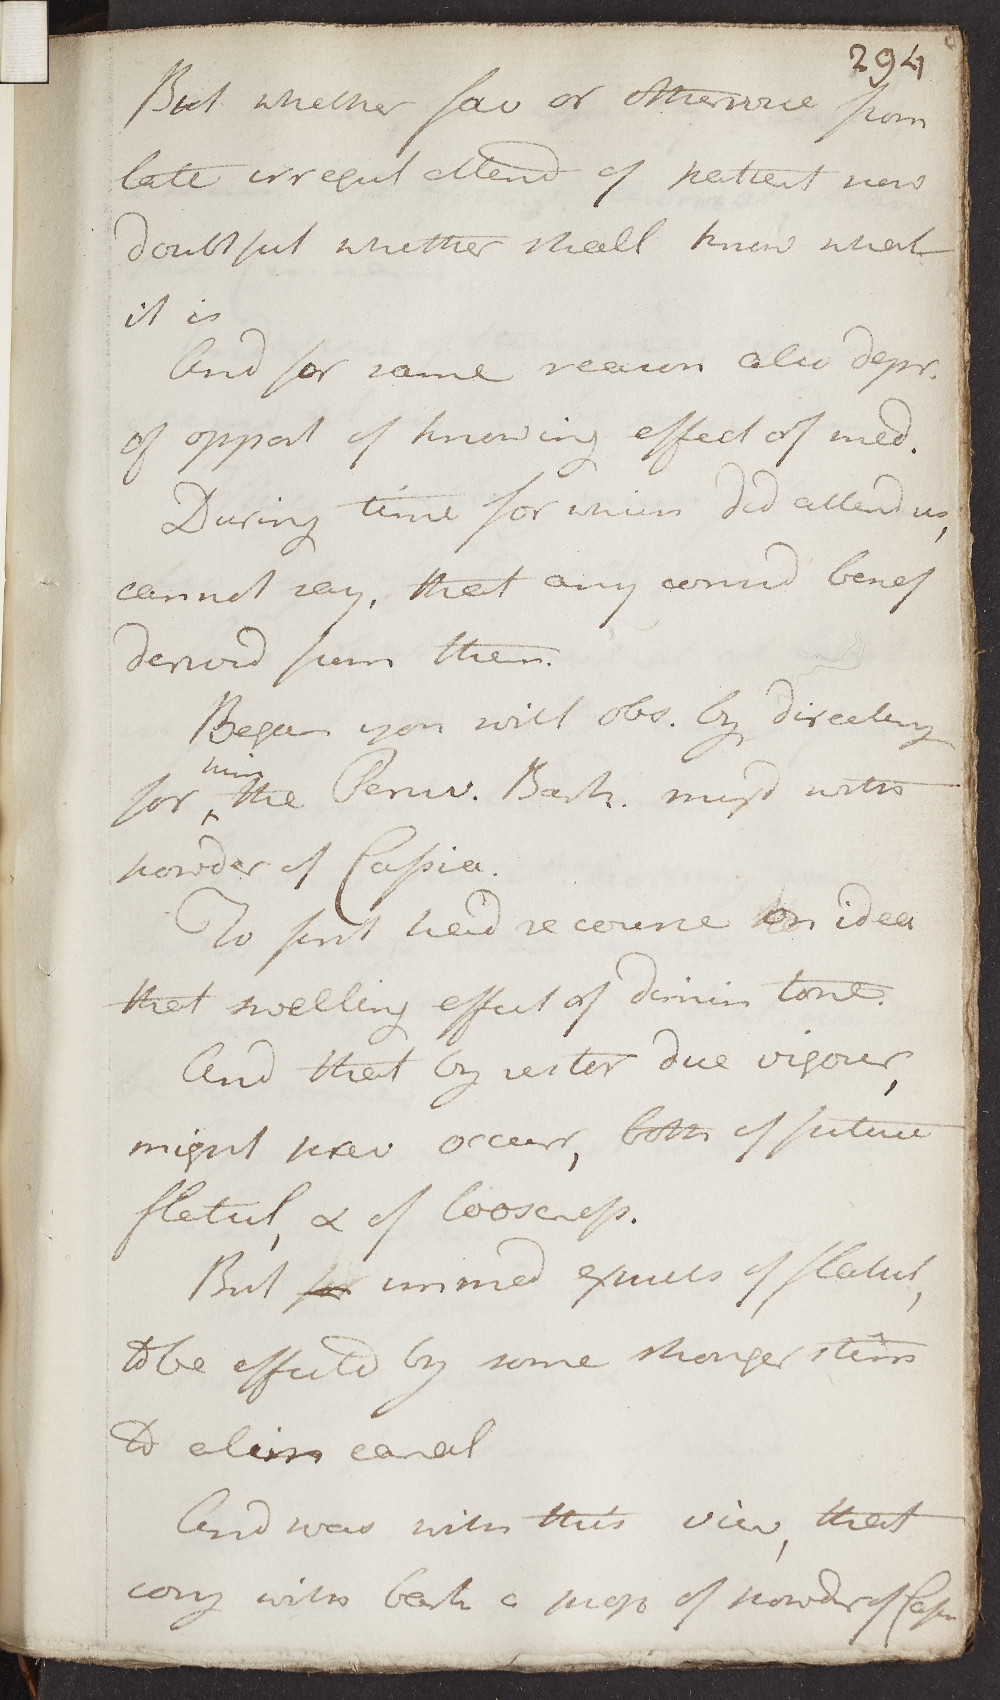 294
But whether fav or otherwise from
late irregul attend of patient now
doubtful whether shall know what
it is
And for same reason also depr.
of opport of knowing effect of med.
During time for which did attend us,
cannot say, that any consid benef
derived from them.
Began you will obs. by directing
him
for ^ the Peruv. Bark. mixd with
powder of Cassia.
To first had recourse on idea
that swelling effect of dimin tone.
And that by restor due vigour,
might prev occurr, both of future
flatul, & of looseness.
But for immed expuls of flatul,
to be effectd by some stronger stim
to alim canal
And was with this view, that
conj with bark a prop of powder of Cass